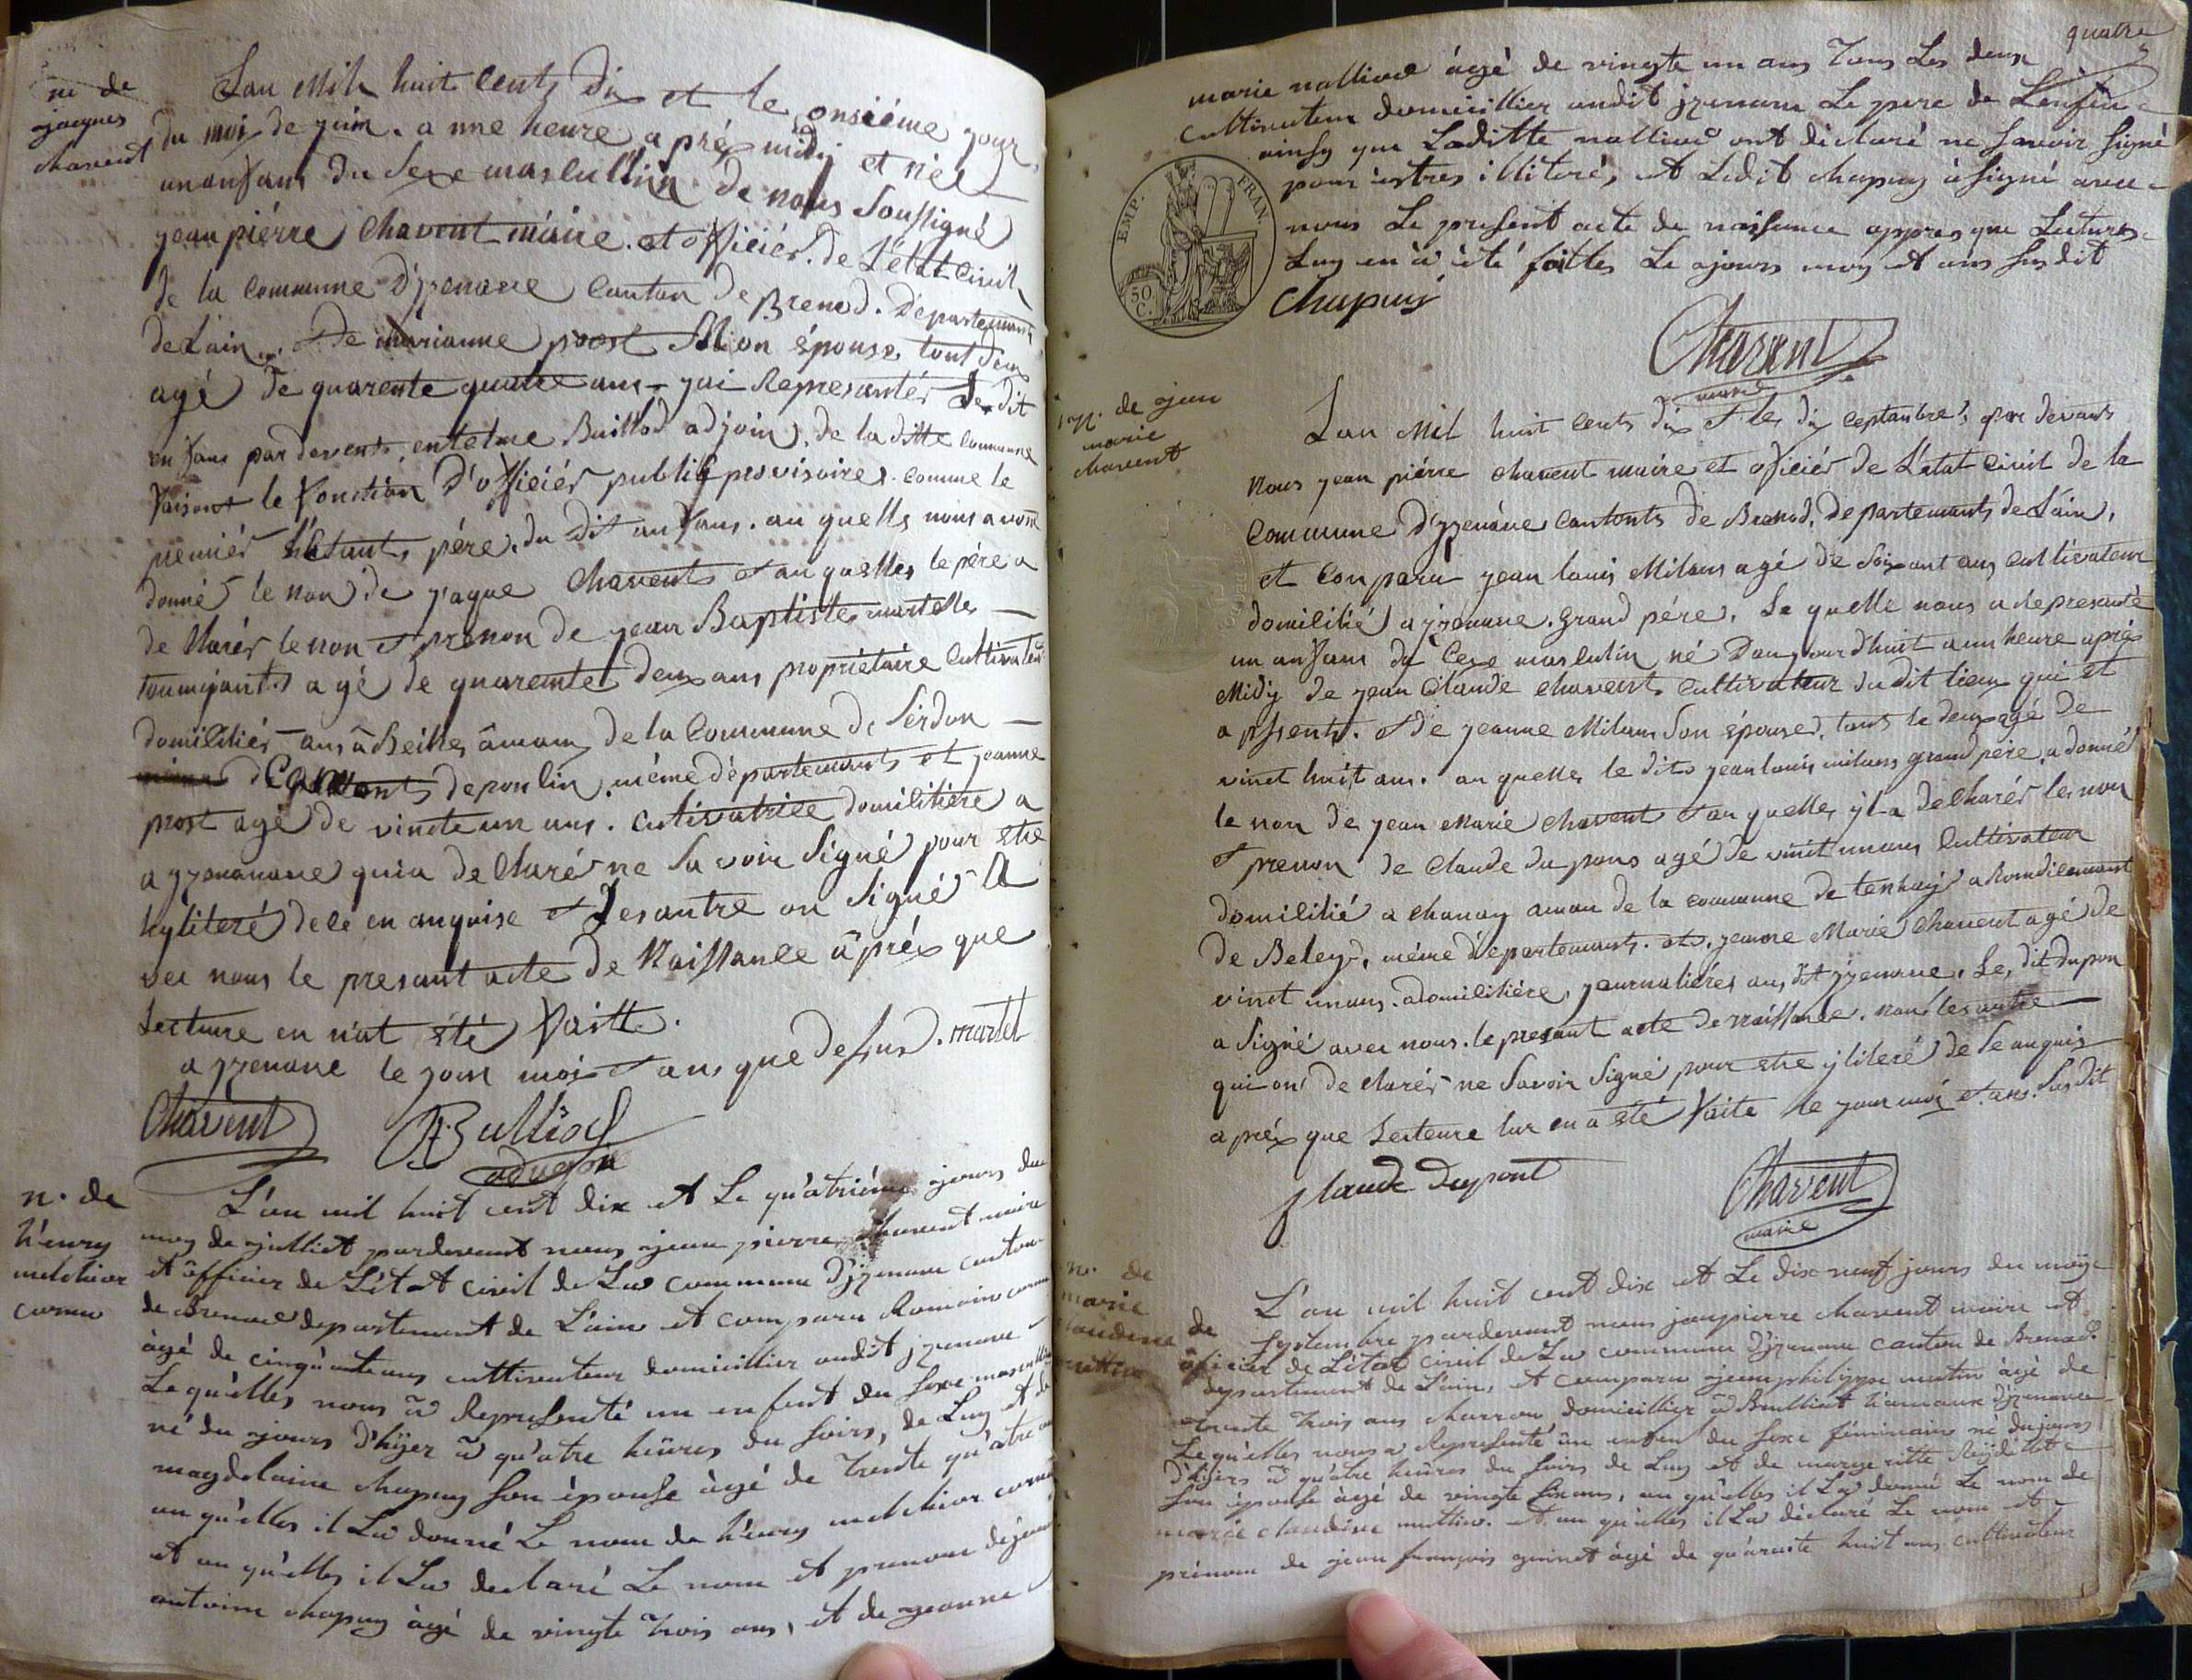 ne de
jacques
chavent
L'an Mil huit Cents Dix et le onsiéme jour
du moi de juin. a une heure aprés midy et née
un anfans du Sexe masculin de nous Soussigné
jean piérre Chavent maire et officiér de L'état Civil
de la Commune D'yzenave Canton de Brenod. Departemants
de Lain, et De marianne post Mon épouse tout deux
agé De quarente quatre ans, jai Represanter Le dit
en fans par devent, entelme Bulliod adjoin, de la ditte Commune
faisant le fonction D'officiér publiq provisoire, comme le
premiér Etants pére, du Dit anfans. au quelle nous avons
donné le non de jaque Chavent et au quelles le pére a
de Clarér le non et prénon de jean Baptiste martelle
agé de quarente deux ans propriétaire Cultivateur
domiliér a Beille, de la Commune de Serdon
Cantonts de ponlin, méme départemants et jeanne
post agé de vincte un ans. Cultivatrice domilitiére a
a yzenanave qui a de Claré ne Savoir Signé pour etre
hyliteré de ce en anquise et Les autre on Signé A
vec nous le presant acte de Naissance aprés que
Lecture en n'at été faitte.
a yzenave le jour moi et ans que desus. martel
Chavent Bulliod
adjoin
n. de
h'enry
melchior
cornu
L'an mil huit cent dix et Le qu'atriéme jours du
moy de julliet pardevant nous jean pierre chavent maire
et officier de L'état civil de La commune D'izenave canton
de Brenod departement de L'ain et comparu Romain cornu
âgé de cinqu'ante ans cultivateur domicillier audit jzenave
Lequ'elles nous à Representé un enfent du sexe masculin
né du jours d'hijer à qu'atre heûres du soirs, de Luy et de
magdelaine chapuy son épouse âgé de trente qu'atre ans
au qu'elles il La donné Le nom de h'enry melchior cornu
et au qu'elles il La declaré Le nom et prenom de jean
antoine chapuy âgé de vingte trois ans, et de jeanne
quatre
marie nallioud âgé de vingte un ans tous Les deux
cultivateur domicillier audit jzenave Le pere de L'enfen
ainsy que Laditte nalliod ont déclaré ne savoir signé
pour éstres illiteré, et Ledit chapuy à signé avec
nous Le present acte de naissance appres que Lectures
Luy en à été faittes Le jours moy et ans susdit
EMP. FRAN.
50
C.
Chapuy
Chavent
maire
n. de jean
marie
chavent
L'an Mil huit Cents dix et le dix Ceptambre, par devants
Nous jean piérre Chavent maire et officiér de L'état Civil de la
Commune D'yzenave Cantonts de Brenod, departemants de Lain,
et Conparu jean louis Milans agé de Soixant ans Cultivateur
domilitié a yzenave. grand pére, Le quelle nous a represanté
un anfans du Cexe masculin né Daujourd'huit a un heure aprés
Midy de jean Claude chavent, Cultivateur du dit lieux qui et
apsents. et De jeanne Milans Son épouse, tous le deux agé de
vinct huit ans. au quelle, le dits jean louis milans grand pére, a donné
le non de jean Marie Chavent et au quelles yl a de Clarér le non
et prenon de Claude dupons agé de vinct un ans Cultivateur
domilitié a Chanay aman de la commune de tenhay arondicement
de Beley, méme départemants, et, jeanne Marie Chavent agé de
vinct un ans. adomilitiére, journaliéres au, dit yzenave, Le, dit dupon
a Signé avec nous. le presant acte de naissance. non les autre
qui on de Clarér ne Savoir Signé pour etre yliteré de Ce anquis
aprés que Lecteure lur en a été faite le jour moi et ans. Susdit
Claude Dupont
Chavent
maire
n. de
marie
claudine
L'an mil huit cent dix et Le dix neuf jours du moy
de septembre pardevant nous jeanpierre chavent maire et
officier de L'état civil de La commune D'izenave canton de Brenod
departement de L'ain, et comparu jeanphilippe mutin âgé de
trente trois ans charron domicillier à Bulliat hamaux d'izenave
Lequ'elles nous à Representé un enfent du sexe féminain né du jours
d'hijers à qu'atre heûres du soirs de Luy et de margueritte
son épouse âgé de vingte six ans, au qu'elles il La donné Le nom de
marie claudine muttin. et au qu'elles il La déclaré Le nom et
prénom de jean françois guinet âgé de qu'arante huit ans cultivateur